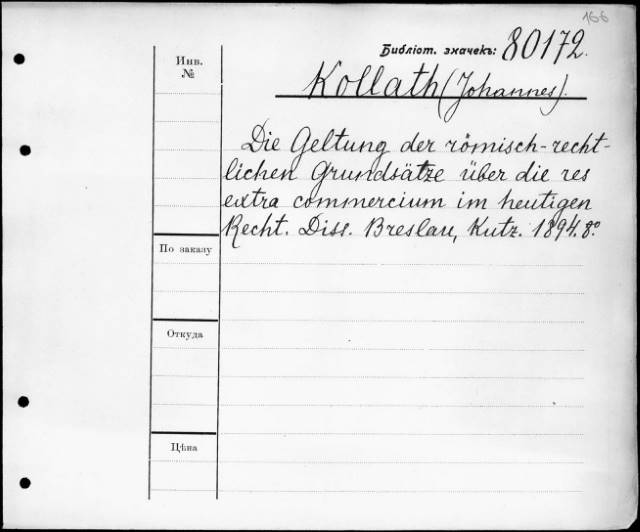 166
Библіот. значекъ: 80172.
Инв.
№
Kollath (Johannes).
Die Geltung der römisch-recht-
lichen Grundsätze über die res
extra commercium im heutigen
Recht. Diss. Breslau, Kutz. 1894. 8.º
По заказу
Откуда
Цѣна